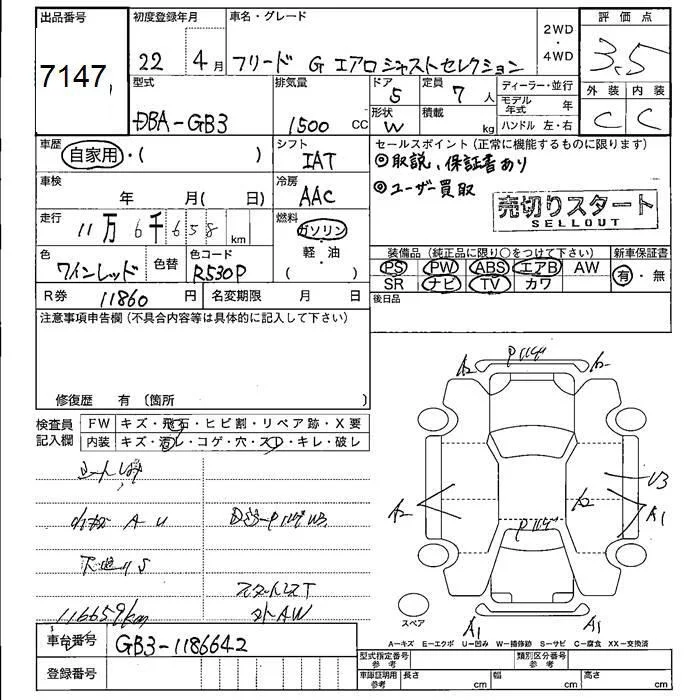 出品番号
7147
初度登録年月
22 4月
車名・グレード
フリード G エアロ ジャストセレクション
2WD
・
4WD
評価点
3.5
外装 内装
C C
型式
DBA-GB3
排気量
1500 cc
ドア
5
形状
W
定員
7 人
積載
kg
ディーラー・並行
モデル年式 年
ハンドル 左・右
車歴
自家用・( )
シフト
IAT
セールスポイント(正常に機能するものに限ります)
◎取説、保証書あり
◎ユーザー買取
売切りスタート
SELLOUT
車検
年 月( 日)
冷房
AAC
走行
11万6千658 km
燃料
ガソリン
軽・油
( )
色
ワインレッド
色替
色コード
R530P
装備品(純正品に限り○をつけて下さい)
PS PW ABS エアB AW
SR ナビ TV カワ
新車保証書
有・無
R券 11860 円
名変期限 月 日
後日品
注意事項申告欄(不具合内容等は具体的に記入して下さい)
修復歴 有 〔箇所 〕
検査員
記入欄
FW キズ・飛石・ヒビ割・リペア跡・X要
内装 キズ・汚レ・コゲ・穴・スレ・キレ・破レ
A U
下廻りS
116659km
外AW
車台番号
GB3-1186642
登録番号
A2
A2
A2
A2
U3
A1
A1
A1
スペア
A-キズ E-エクボ U-凹み W-補修跡 S-サビ C-腐食 XX-交換済
型式指定番号
参考
類別区分番号
参考
車庫証明用
参考
長さ cm
幅 cm
高さ cm